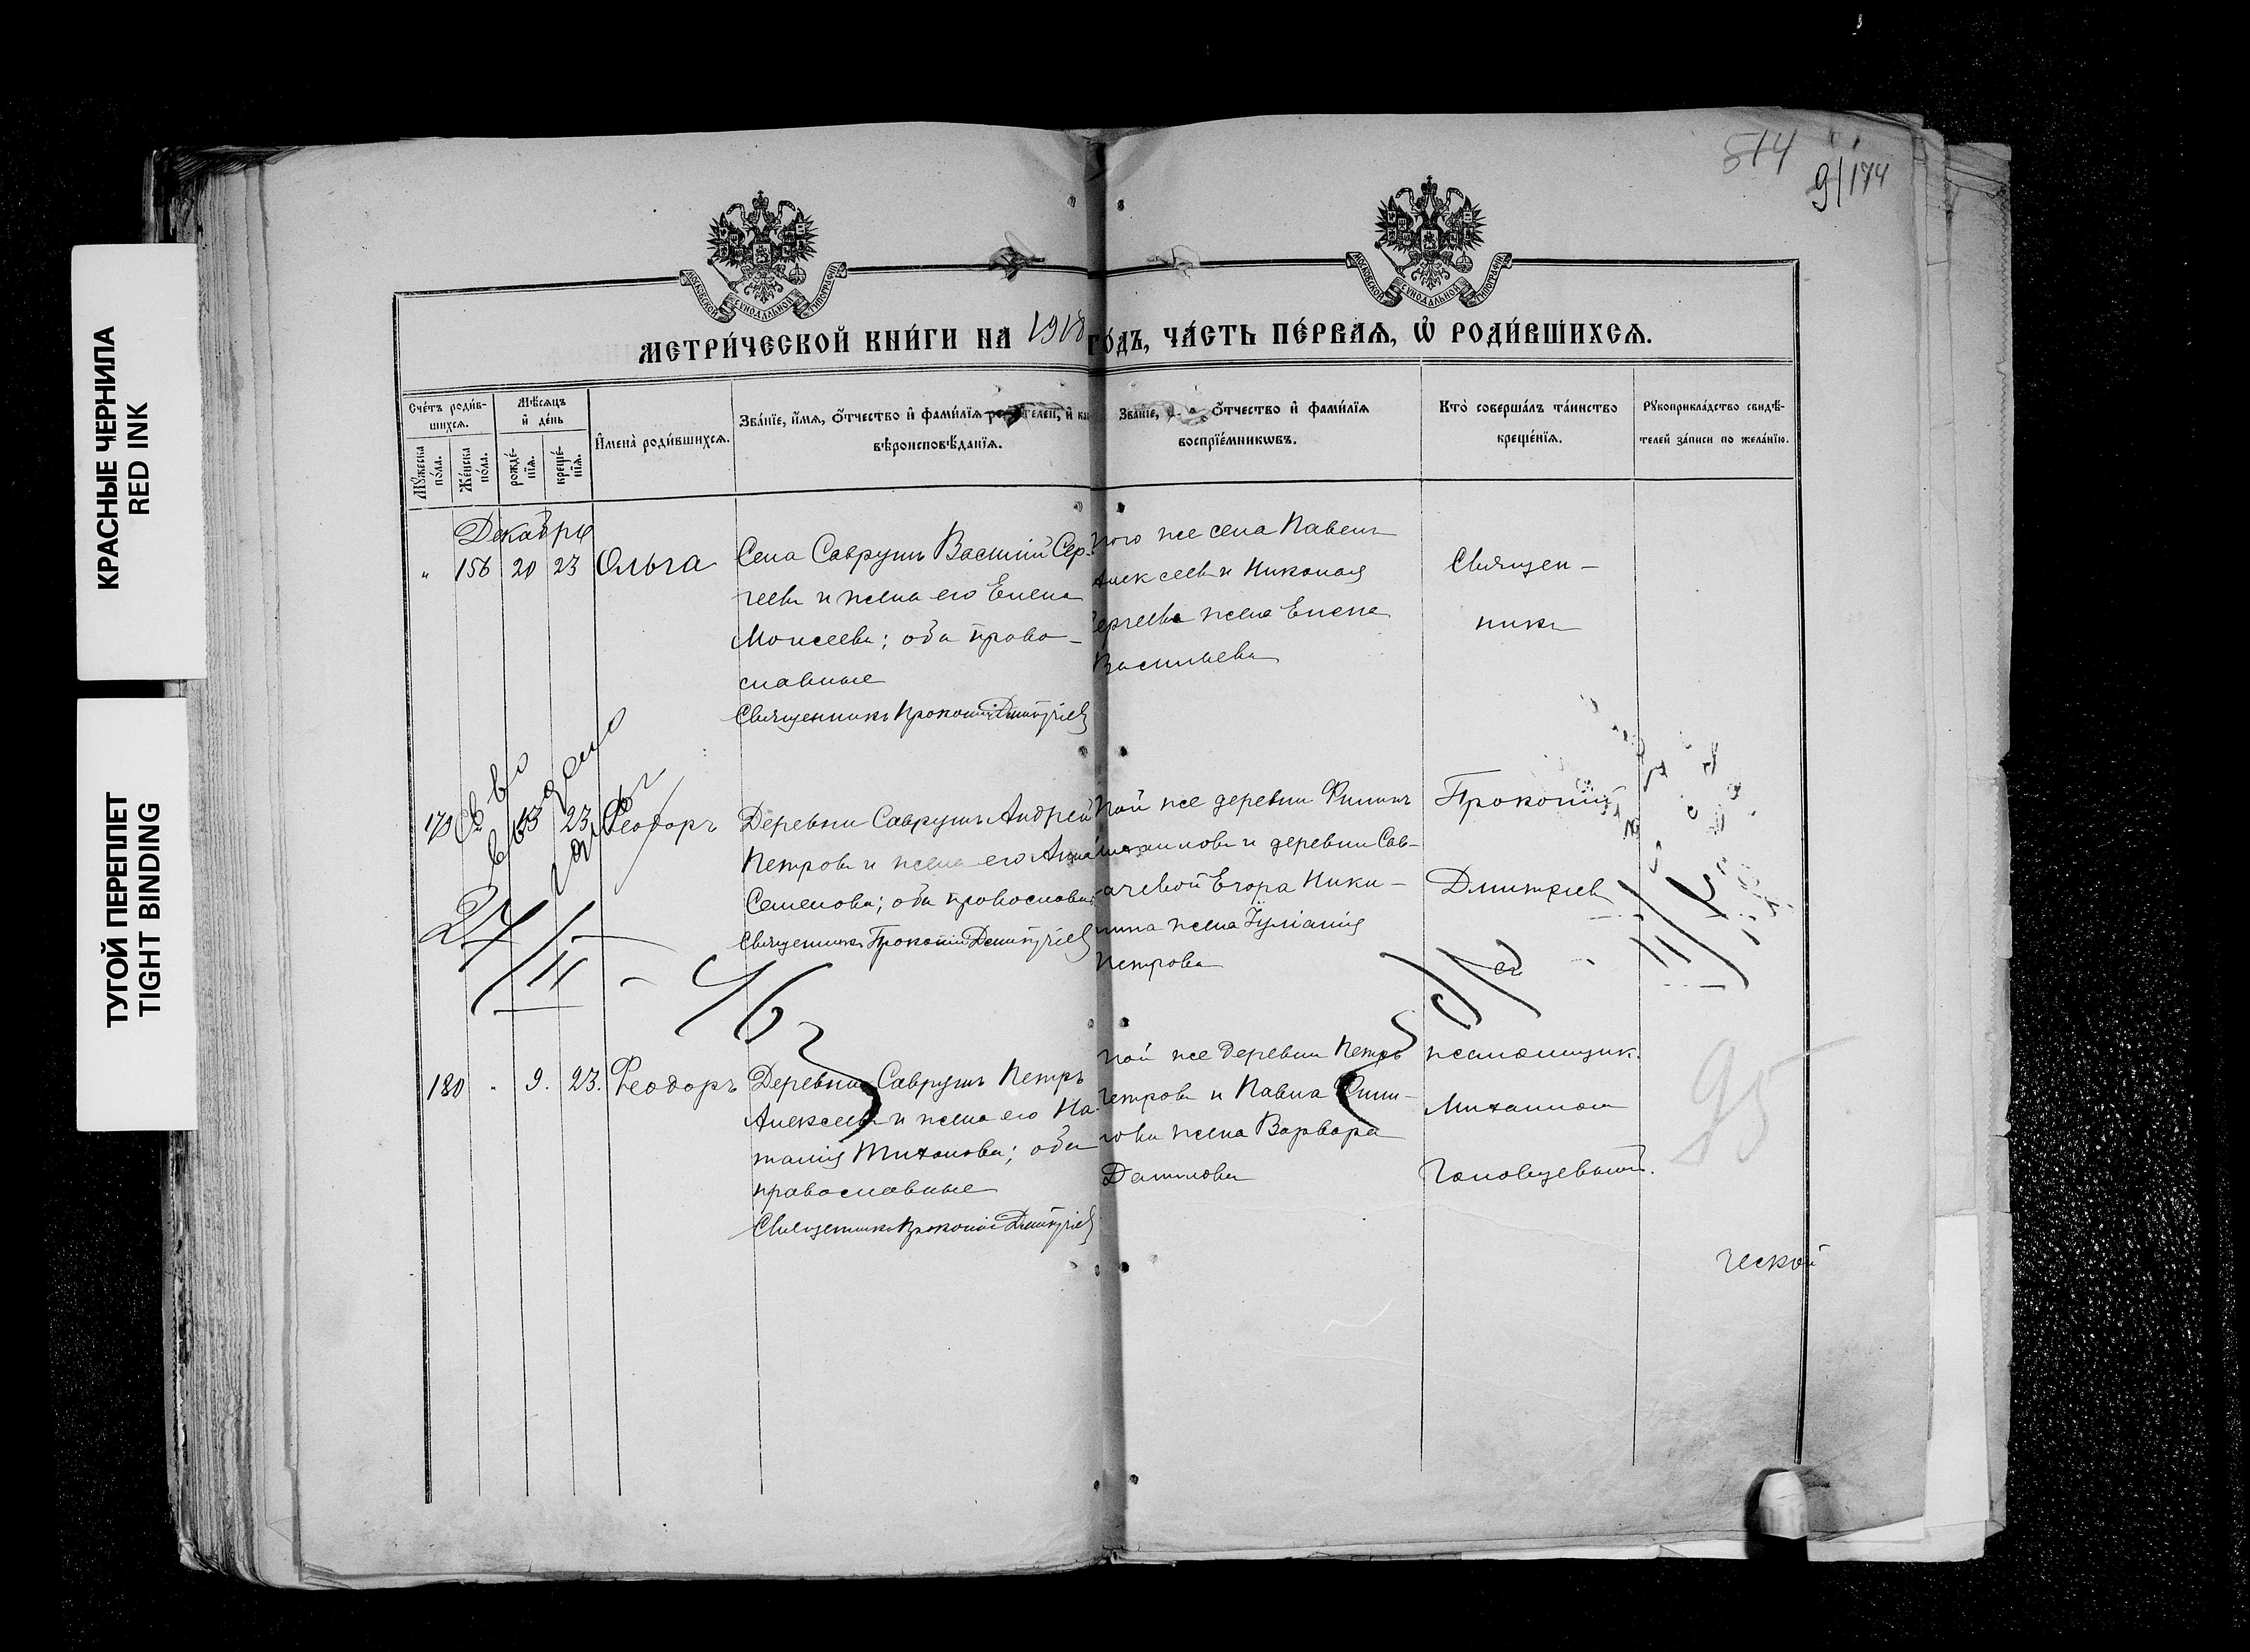 КРАСНЫЕ ЧЕРНИЛА
RED INK
ТУГОЙ ПЕРЕПЛЕТ
TIGHT BINDING
514
9/174
МОСКОВСКОЙ СѴНОДАЛЬНОЙ ТИПОГРАФІИ
МОСКОВСКОЙ СѴНОДАЛЬНОЙ ТИПОГРАФІИ
МЕТРИ́ЧЕСКОЙ КНИ́ГИ НА 1918 ГО́ДЪ, ЧА́СТЬ ПЕ́РВАЯ, Ѿ РОДИ́ВШИХСЯ.
Сче́тъ роди́в-
шихся.
Му́жеска по́ла.
Же́нска по́ла.
Мѣ́сяцъ
и де́нь
рожде́-
нїя.
креще́-
нїя.
Имена̀ роди́вшихся.
Зва́нїе, и́мя, о́тчество и фами́лїя родителей, и
вѣроисповѣ́данїя.
Зва́нїе, о́тчество и фами́лїя
воспрїе́мниковъ.
Кто̀ соверша́лъ та́инство
креще́нїя.
Рукоприкла́дство свидѣ́-
телей за́писи по жела́нїю.
Декабрь
„ 156 20 23 Ольга
Села Саврушъ Василій Сер-
геевъ и жена его Елена
Моисеева; оба право-
славные
Священникъ Прокопій Димитріев
того же села Павелъ
Алексеевъ и Николая
Сергеева жена Елена
Васильева
Священ-
никъ
179 13 23 Феодоръ
Деревни Саврушъ Андрей
Петровъ и жена его Анна
Семенова; оба православн
Священникъ Прокопій Димитріев
той же деревни Филипъ
Михаиловъ и деревни Сав-
ачевой Егора Ники-
тина жена Іуліанія
Петрова
Прокопій
Дмитріев
27/II - 46 г
180 „ 9. 23. Феодоръ
Деревни Саврушъ Петръ
Алексеевъ и жена его На-
талія Тихонова; оба
православные
Священникъ Прокопій Димитріев
той же деревни Петръ
Петровъ и Павла Фили-
пова жена Варвара
Данилова
псаломщик.
Михаилом
Головцевым.
95
ческой